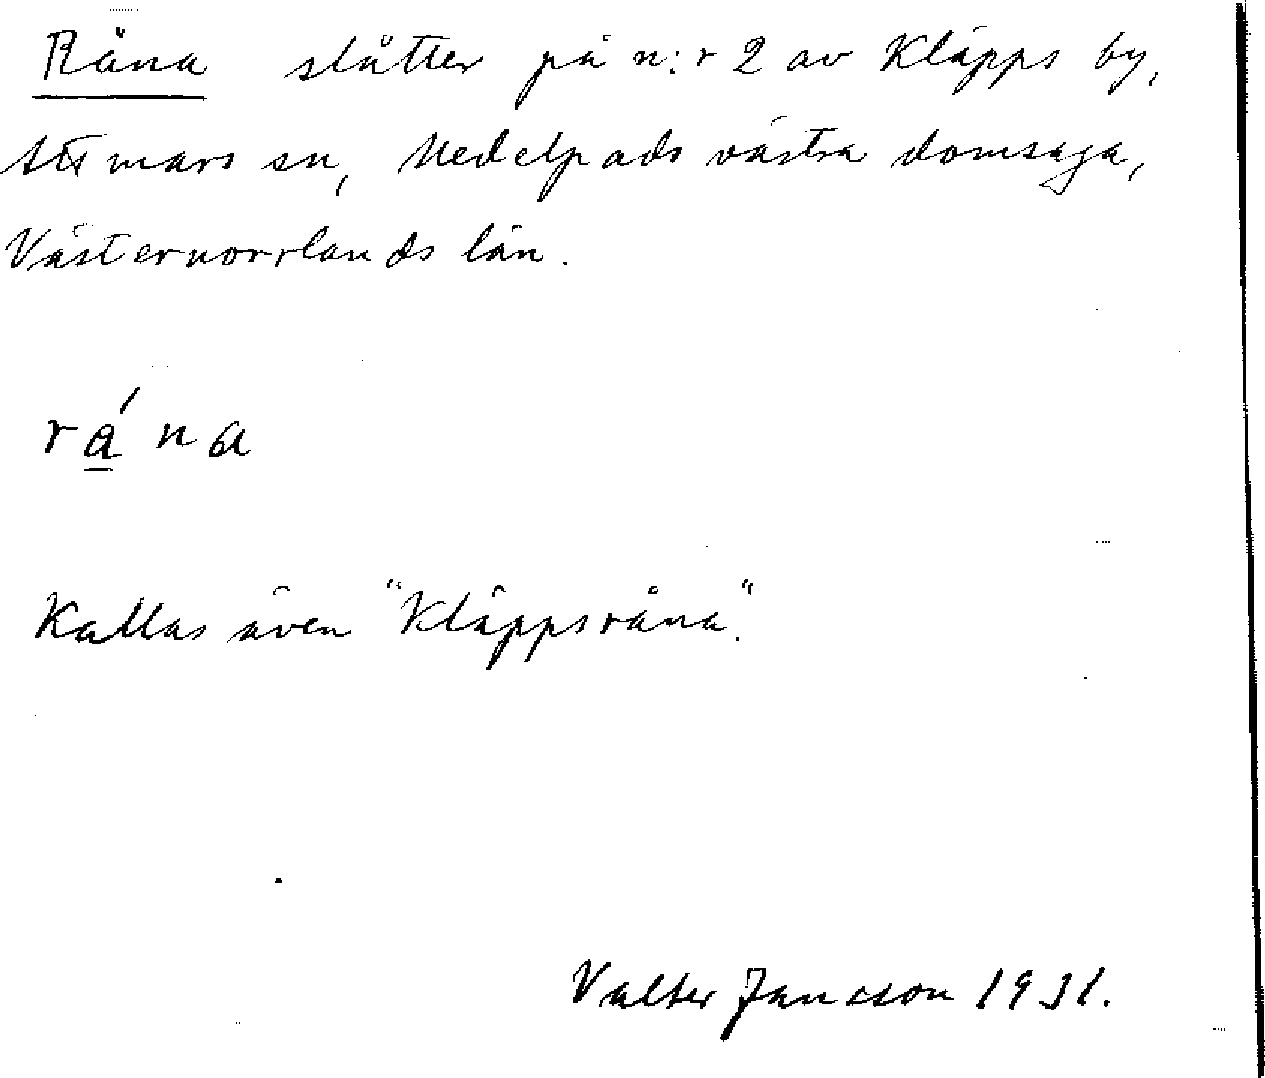 Råna slåtter på n:r 2 av Kläpps by,
Attmars sn, Medelpads västra domsaga,
Västernorrlands län.
rá̱na
Kallas även "Kläppsråna".
Valter Jansson 1931.